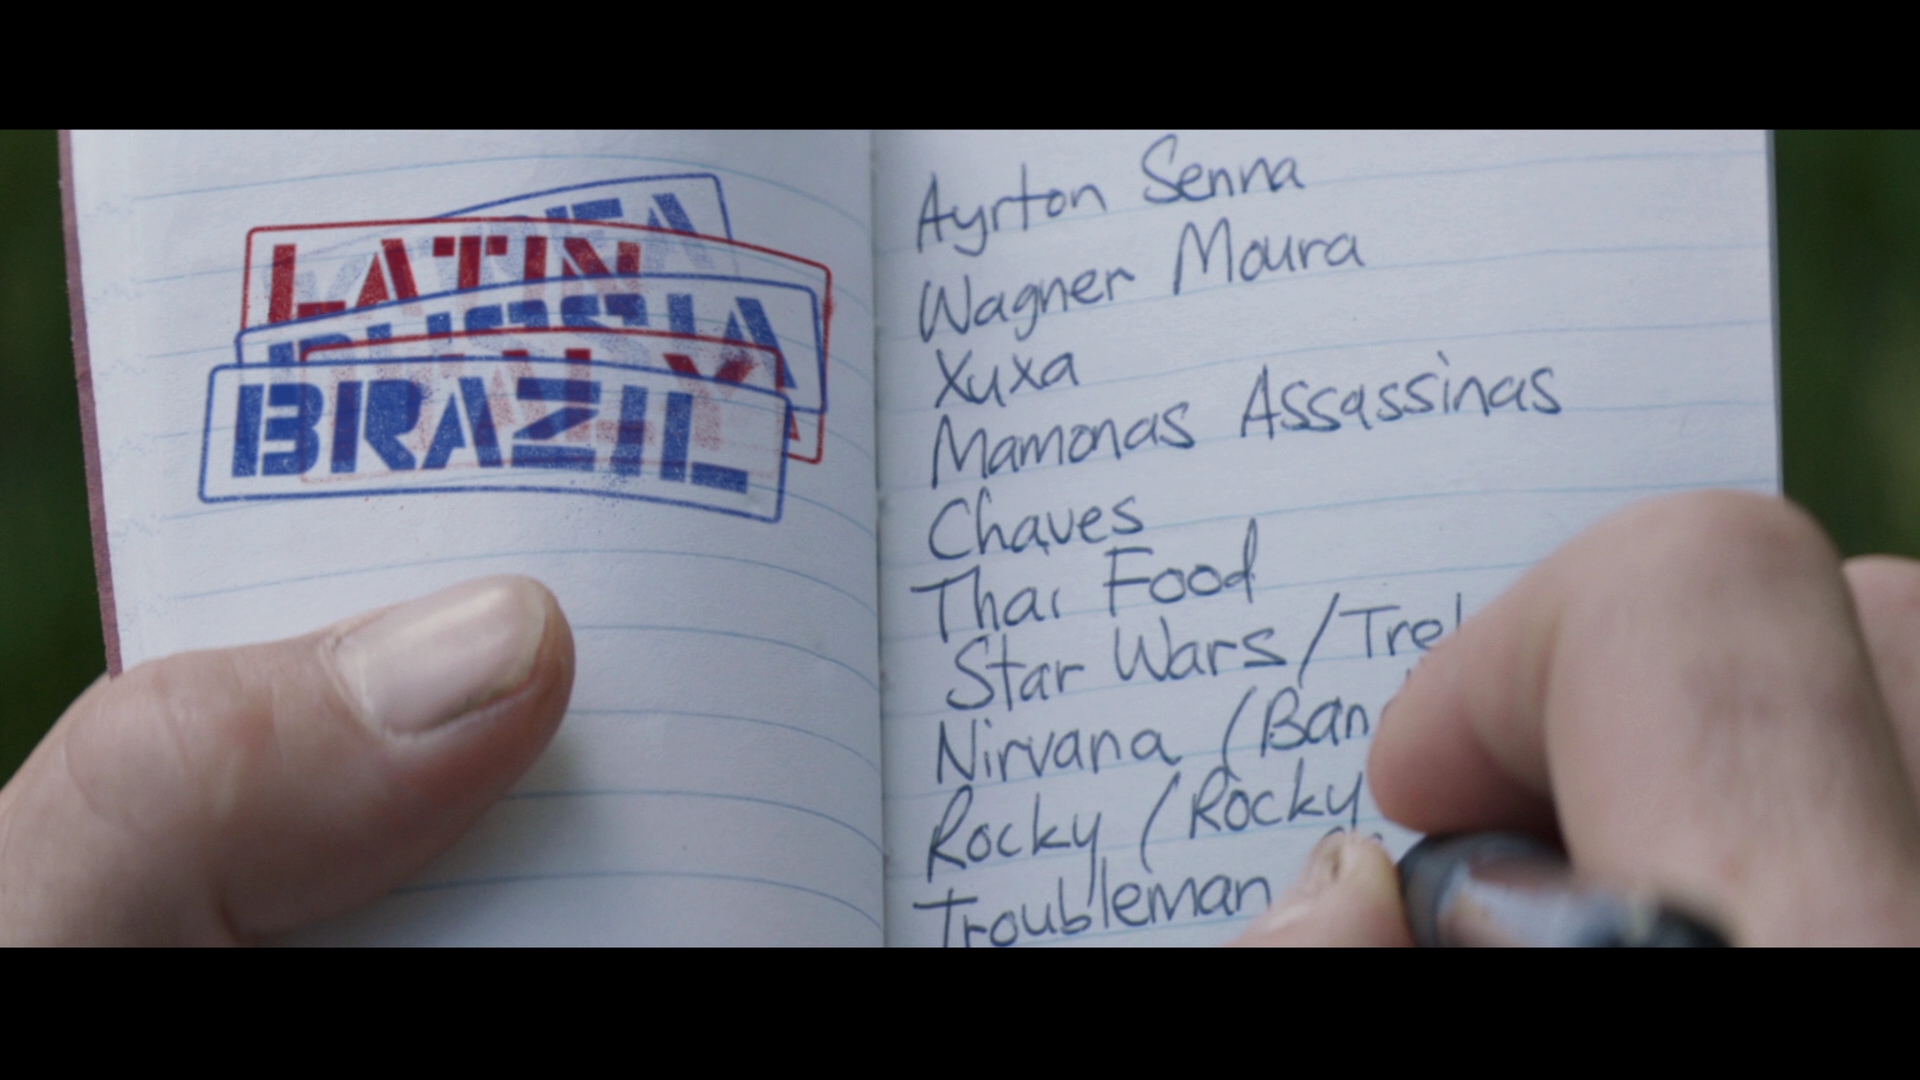 LATIN
BRAZIL
Ayrton Senna
Wagner Moura
Xuxa
Mamonas Assassinas
Chaves
Thai Food
Star Wars / Tre
Nirvana (Ban
Rocky (Rocky
Troubleman